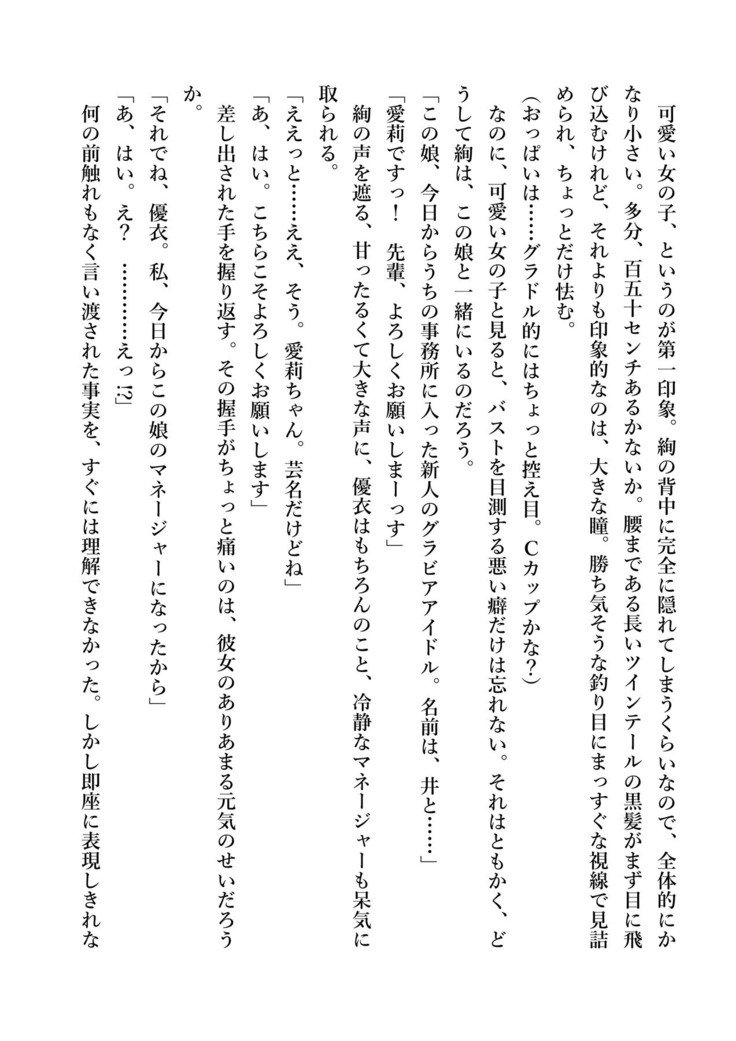 可愛い女の子、というのが第一印象。絢の背中に完全に隠れてしまうくらいなので、全体的にか
なり小さい。多分、百五十センチあるかないか。腰まである長いツインテールの黒髪がまず目に飛
び込むけれど、それよりも印象的なのは、大きな瞳。勝ち気そうな釣り目にまっすぐな視線で見詰
められ、ちょっとだけ怯む。
(おっぱいは……グラドル的にはちょっと控え目。Ｃカップかな？)
　なのに、可愛い女の子と見ると、バストを目測する悪い癖だけは忘れない。それはともかく、ど
うして絢は、この娘と一緒にいるのだろう。
「この娘、今日からうちの事務所に入った新人のグラビアアイドル。名前は、井と……」
「愛莉ですっ！　先輩、よろしくお願いしまーっす」
　絢の声を遮る、甘ったるくて大きな声に、優衣はもちろんのこと、冷静なマネージャーも呆気に
取られる。
「ええっと……ええ、そう。愛莉ちゃん。芸名だけどね」
「あ、はい。こちらこそよろしくお願いします」
　差し出された手を握り返す。その握手がちょっと痛いのは、彼女のありあまる元気のせいだろう
か。
「それでね、優衣。私、今日からこの娘のマネージャーになったから」
「あ、はい。え？　…………えっ!?」
　何の前触れもなく言い渡された事実を、すぐには理解できなかった。しかし即座に表現しきれな